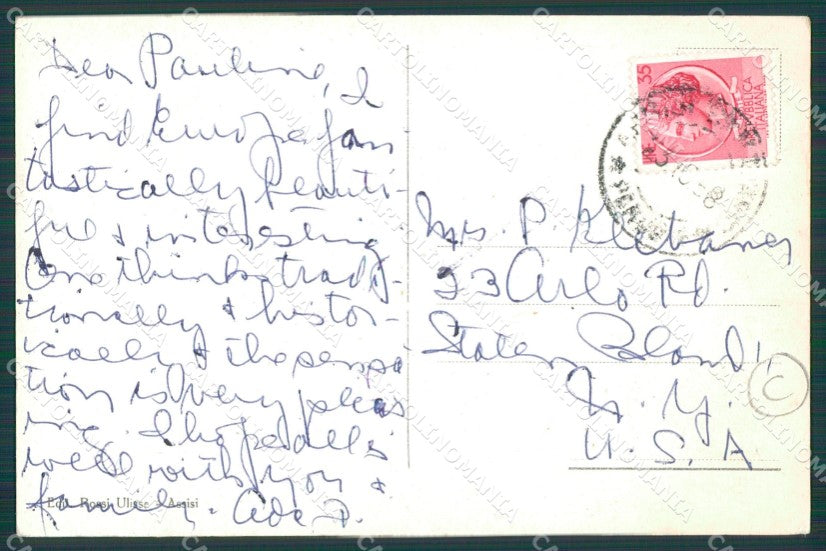 Dear Pauline, I
find Europe fan
tastically beauti-
ful & interesting
One thinks tradi-
tionally & histor-
ically & the sensa
tion is very pleas
ing. I hope all is
well with you &
family. Ada P.
Ediz. Rossi Ulisse - Assisi
35
LIRE
REPUBBLICA
ITALIANA
Mrs. P. Klebaner
33 Arlo Rd.
Staten Island,
N. Y.
U. S. A
C
CARTOLINOMANIA